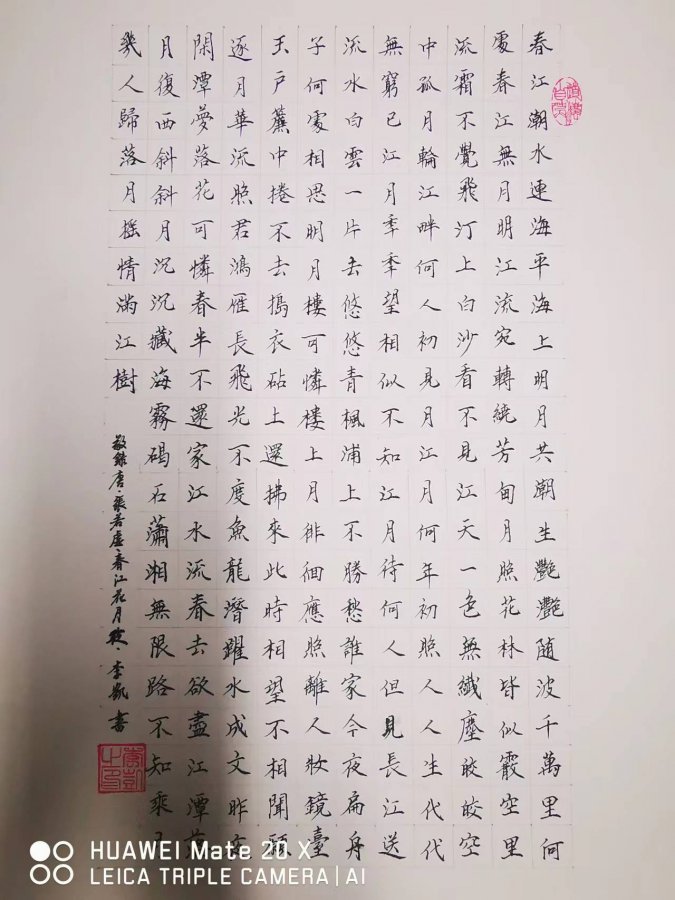 春江潮水連海平海上明月共潮生艷艷随波千萬里何
處春江無月明江流宛轉繞芳甸月照花林皆似霰空里
流霜不覺飛汀上白沙看不見江天一色無纖塵皎皎空
中孤月輪江畔何人初見月江月何年初照人人生代代
無窮已江月年年望相似不知江月待何人但見長江送
流水白雲一片去悠悠青楓浦上不勝愁誰家今夜扁舟
子何處相思明月樓可憐楼上月徘徊應照離人妝鏡臺
玉戶簾中捲不去搗衣砧上還拂來此時相望不相聞願
逐月華流照君鴻雁長飛光不度魚龍潛躍水成文昨夜
閑潭夢落花可憐春半不還家江水流春去欲盡江潭落
月復西斜斜月沉沉藏海霧碣石瀟湘無限路不知乘月
幾人歸落月摇情滿江樹
敬錄唐·張若虛·春江花月夜·李凱書
HUAWEI Mate 20 X
LEICA TRIPLE CAMERA | AI